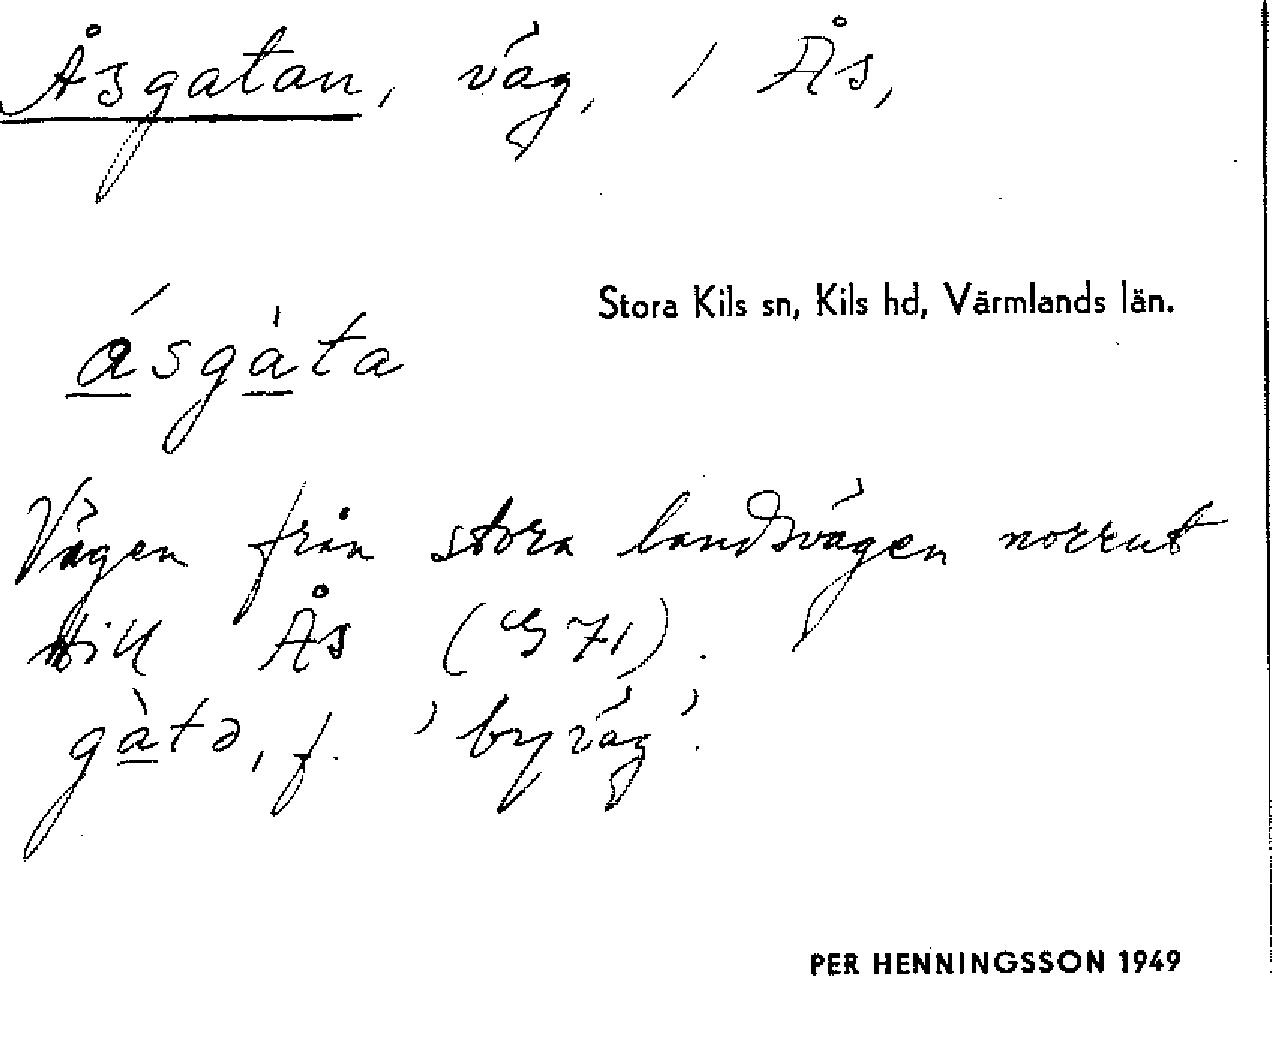 Åsgatan, väg, i Ås,
Stora Kils sn, Kils hd, Värmlands län.
ásgàta
Vägen från stora landsvägen norrut
till Ås (G 71).
gàtə, f. 'byväg'.
PER HENNINGSSON 1949